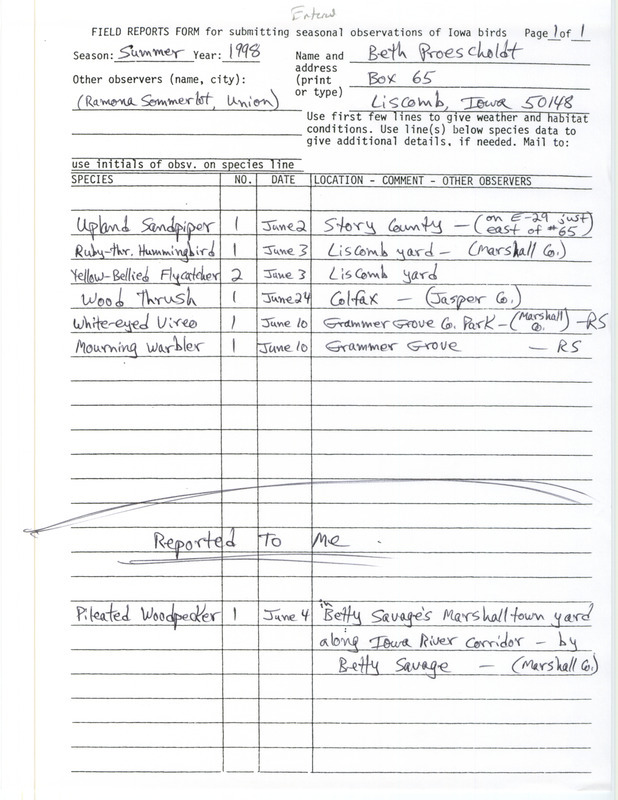 Entered
FIELD REPORTS FORM for submitting seasonal observations of Iowa birds Page 1 of 1
Season: Summer Year: 1998 Name and address (print or type) Beth Proescholdt
Box 65
Liscomb, Iowa 50148
Other observers (name, city):
(Ramona Sommerlot, Union)
Use first few lines to give weather and habitat
conditions. Use line(s) below species data to
give additional details, if needed. Mail to:
use initials of obsv. on species line
SPECIES NO. DATE LOCATION - COMMENT - OTHER OBSERVERS
Upland Sandpiper 1 June 2 Story County - (on E-29 just east of #65)
Ruby-thr. Hummingbird 1 June 3 Liscomb yard - (Marshall Co.)
Yellow-Bellied Flycatcher 2 June 3 Liscomb yard
Wood Thrush 1 June 24 Colfax - (Jasper Co.)
White-eyed Vireo 1 June 10 Grammer Grove Co. Park - (Marshall Co.) - RS
Mourning Warbler 1 June 10 Grammer Grove - RS
Reported To Me .
Pileated Woodpecker 1 June 4 in Betty Savage's Marshalltown yard
along Iowa River Corridor - by
Betty Savage - (Marshall Co.)